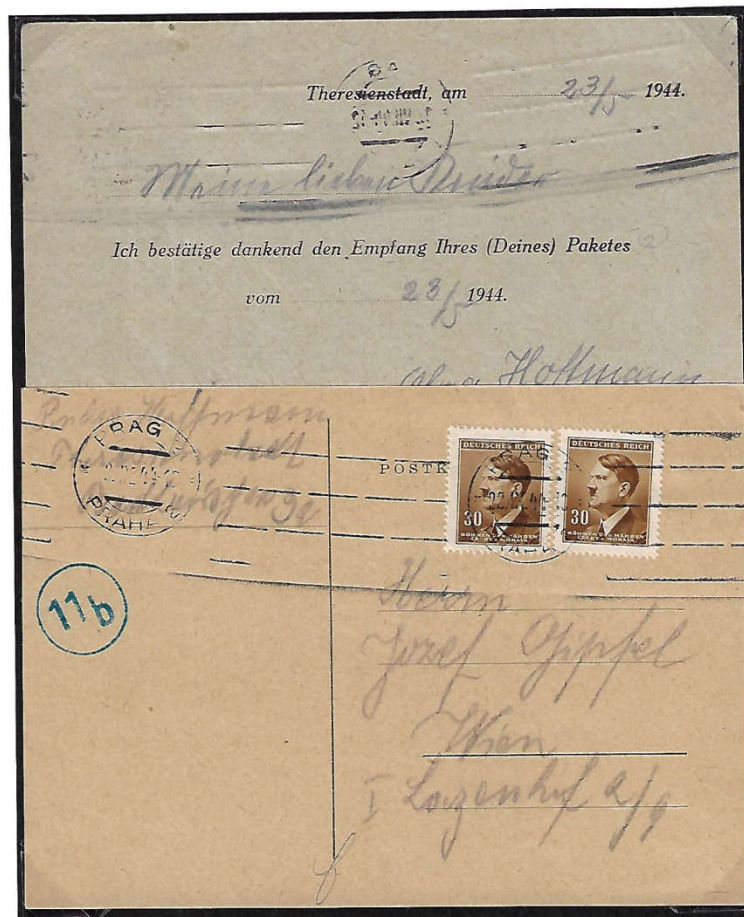 Theresienstadt, am 23/5 1944.
Meine lieben Kinder
Ich bestätige dankend den Empfang Ihres (Deines) Paketes
vom 23/5 1944.
Hoffmann
Hoffmann
PRAG
PRAHA
POSTK
DEUTSCHES REICH
30
BÖHMEN UND MÄHREN
ČECHY A MORAVA
DEUTSCHES REICH
30
BÖHMEN UND MÄHREN
ČECHY A MORAVA
PRAG
11b
Herrn
Josef Gipfel
Wien
I Lazenhof 2/9